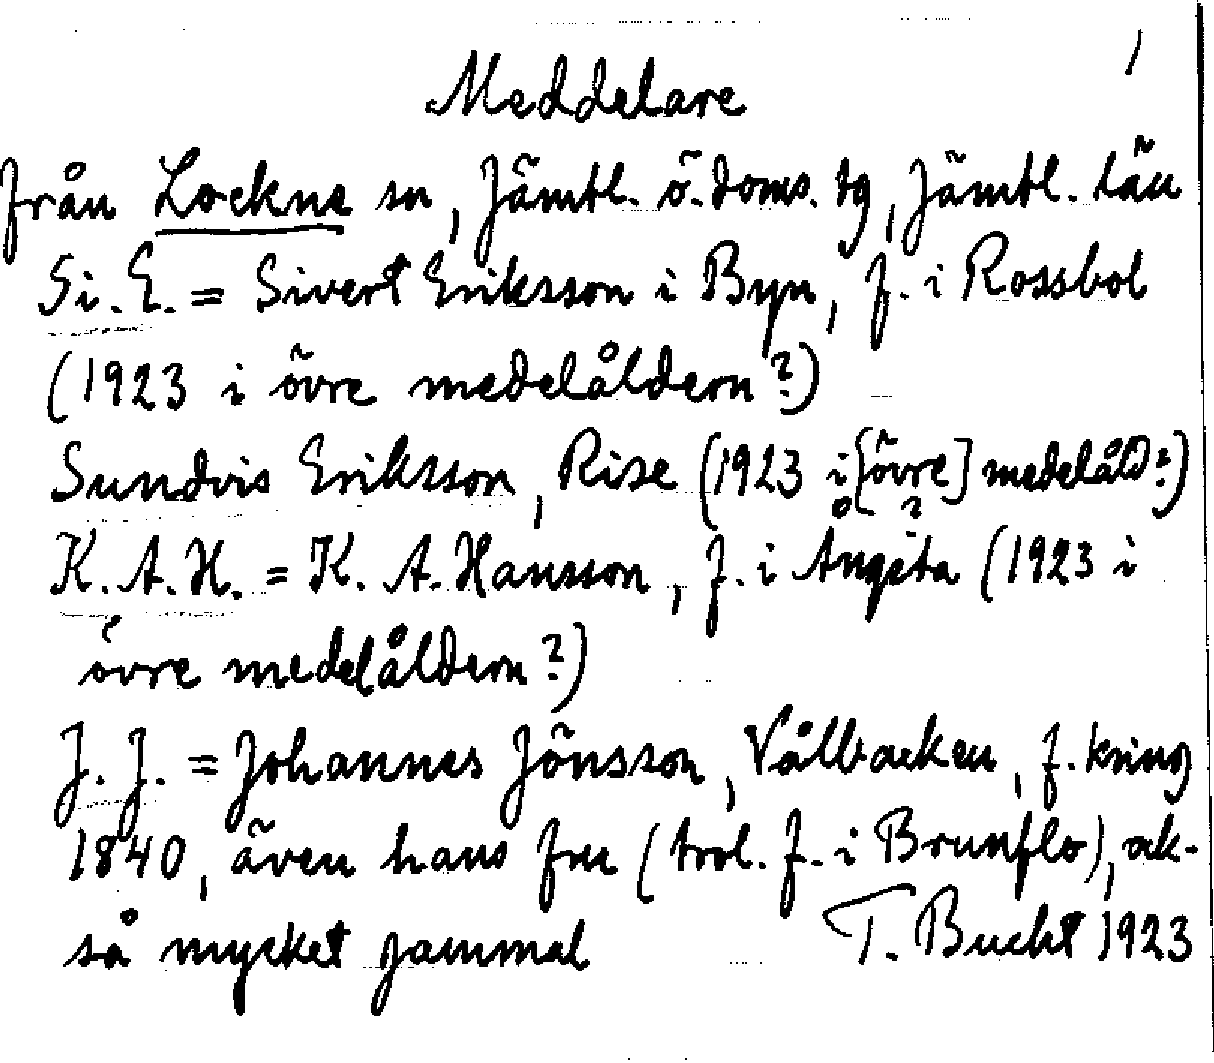 1
Meddelare
från Lockne sn, Jämtl. ö. doms. tg, Jämtl. län
Si. E. = Sivert Eriksson i Byn, f. i Rossbol
(1923 i övre medelåldern?)
Sundvis Eriksson, Rise (1923 i [övre] medelåld?)
K. A. H. = K. A. Hansson, f. i Ångsta (1923 i
övre medelåldern?)
J. J. = Johannes Jönsson, Vålbacken, f. kring
1840, även hans fru (trol. f. i Brunflo), ock-
så mycket gammal T. Bucht 1923